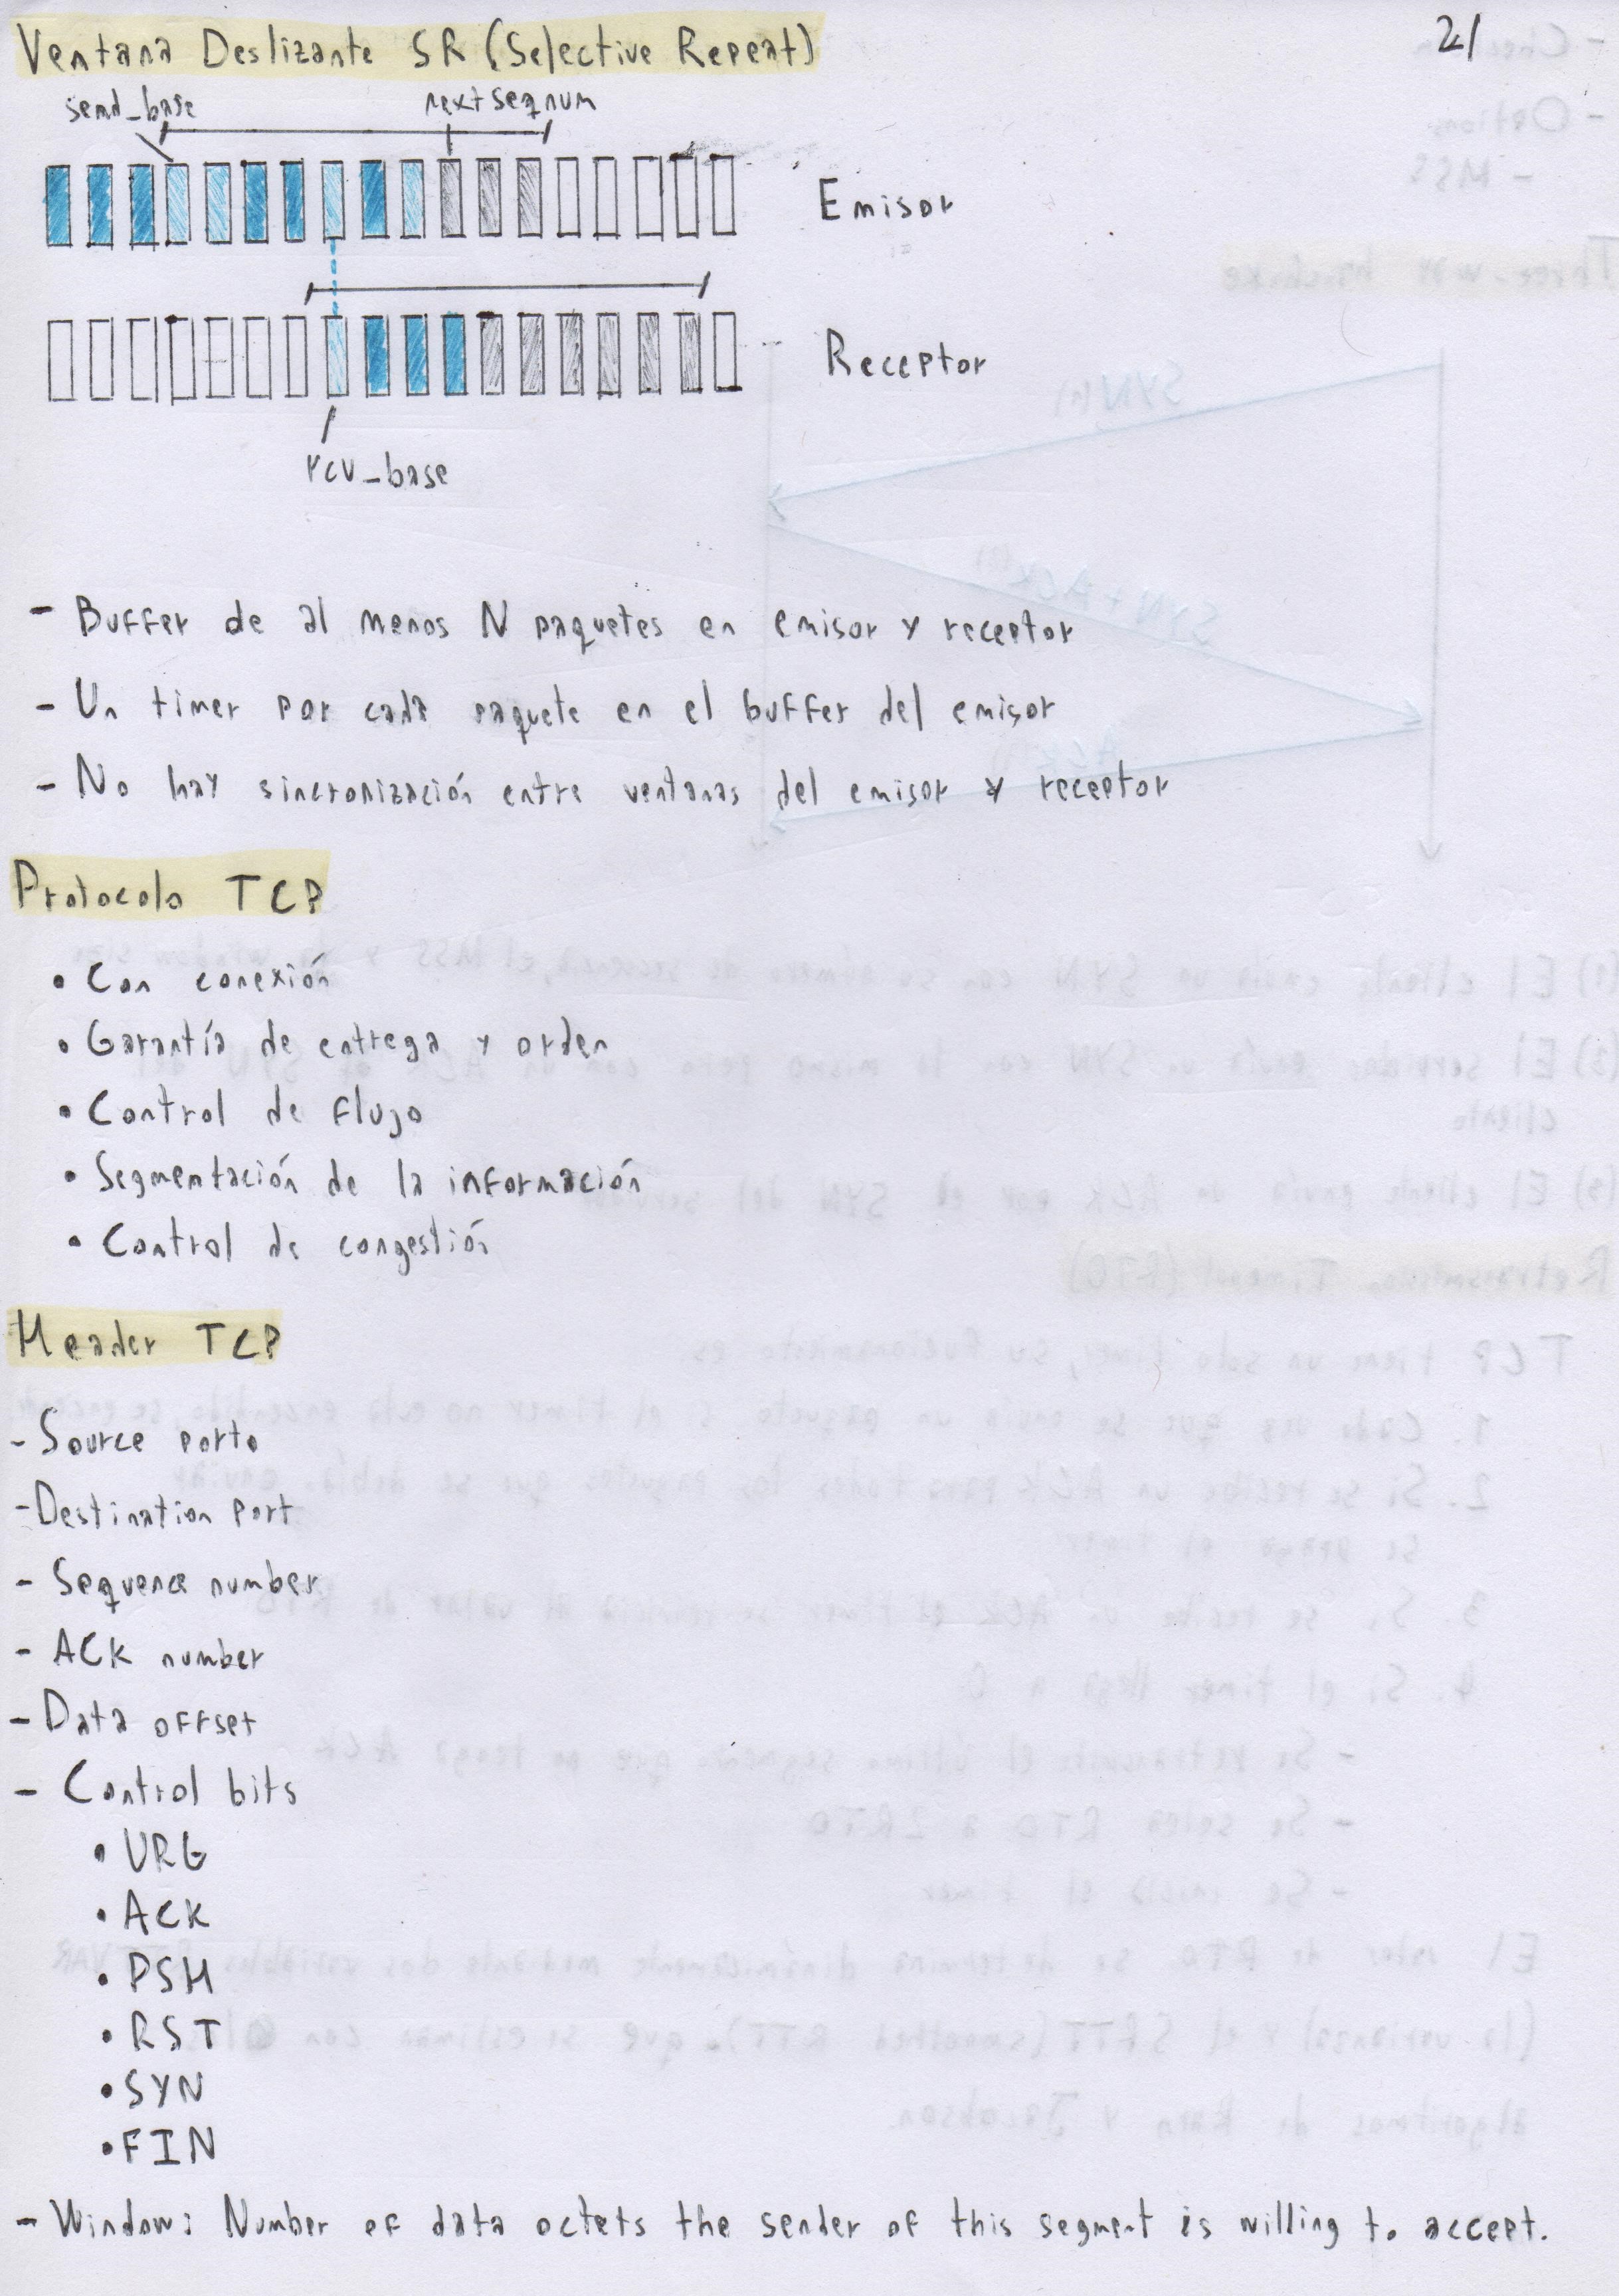 21
Ventana Deslizante SR (Selective Repeat)
send_base nextseqnum
Emisor
Receptor
rcv_base
- Buffer de al menos N paquetes en emisor y receptor
- Un timer por cada paquete en el buffer del emisor
- No hay sincronización entre ventanas del emisor y receptor
Protocolo TCP
• Con conexión
• Garantía de entrega y orden
• Control de flujo
• Segmentación de la información
• Control de congestión
Header TCP
- Source porto
- Destination port
- Sequence number
- ACK number
- Data offset
- Control bits
• URG
• ACK
• PSH
• RST
• SYN
• FIN
- Window: Number of data octets the sender of this segment is willing to accept.